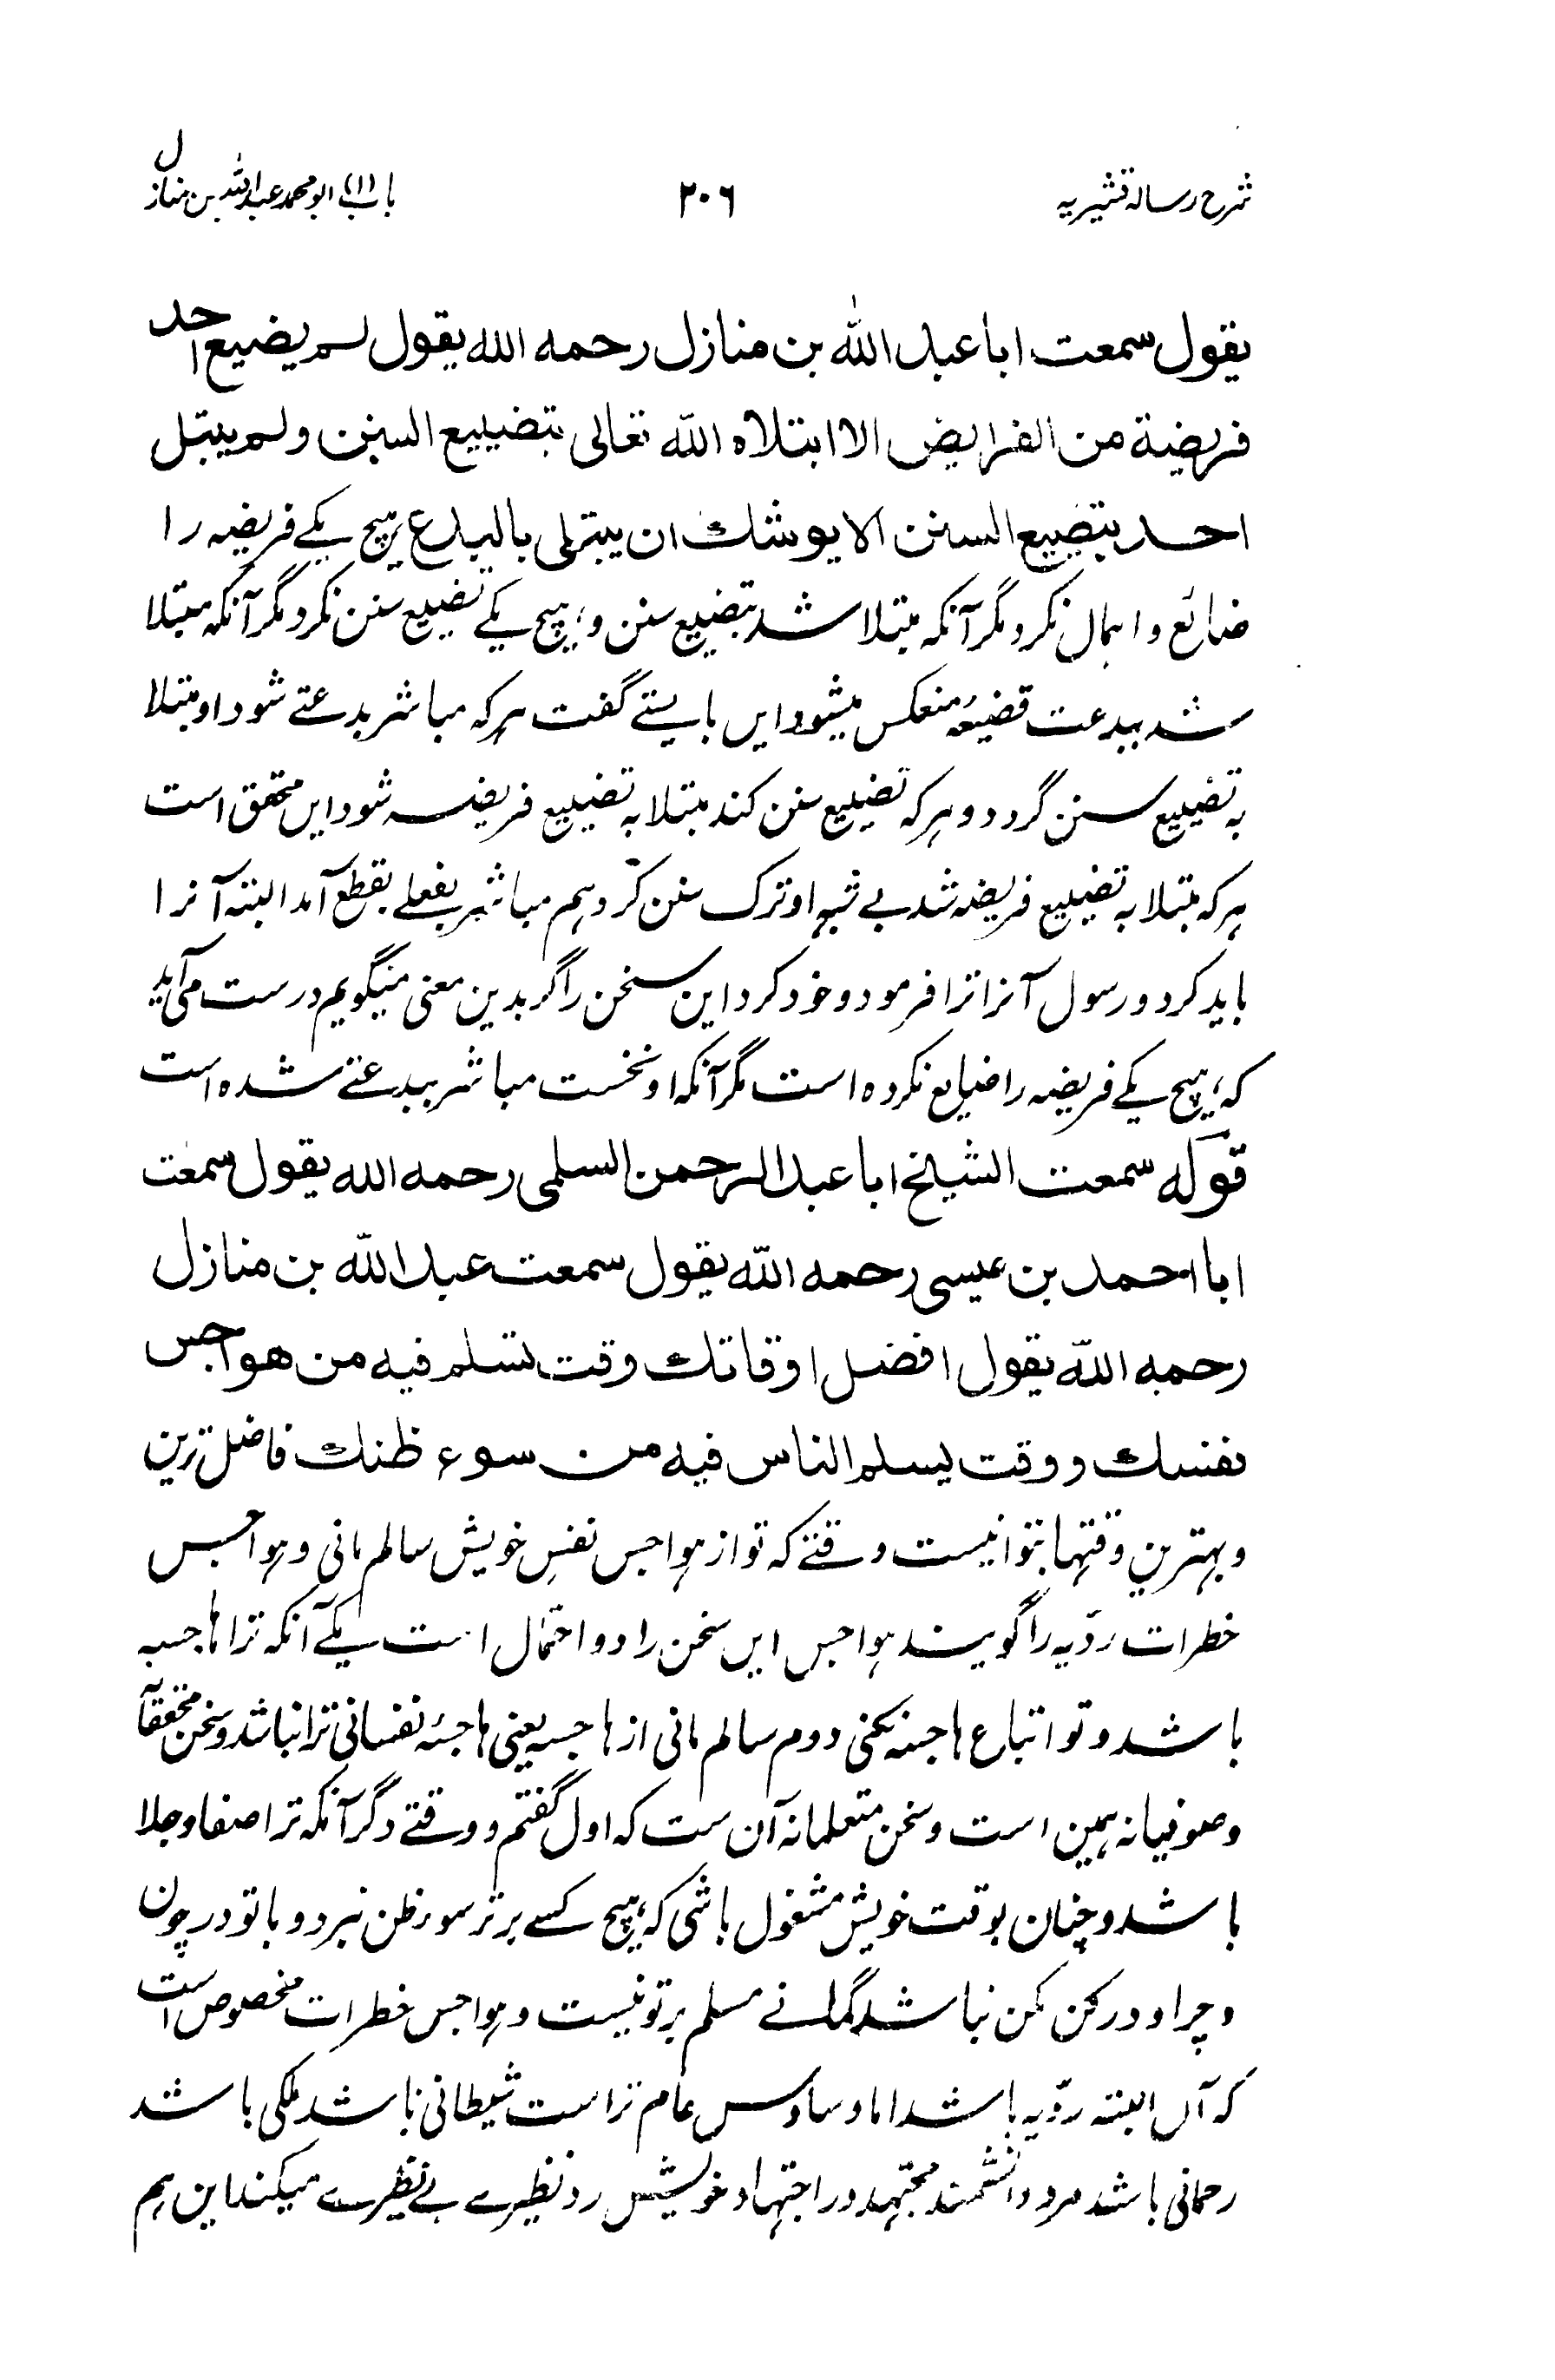 شرح رسالہ قشیریہ ۲۰۶ باب (۱) ابو محمد عبداللہ بن منازل
یقول سمعت ابا عبد اللہ بن منازل رحمہ اللہ یقول لم یضیع احد
فریضۃ من الفرایض الا ابتلاہ اللہ تعالی بتضییع السنن ولم یبتل
احد بتضییع السنن الا یوشک ان یبتلی بالبدع ہیچ یکے فریضہ را
ضائع و اہمال نکرد مگر آنکہ مبتلا شد بتضییع سنن و ہیچ یکے تضییع سنن نکرد مگر آنکہ مبتلا
شد ببدعت قضیۂ منعکس میشود ایں بایستے گفت ہر کہ مباشر بدعتے شود او مبتلا
بہ تضییع سنن گردد و ہر کہ تضییع سنن کند مبتلا بہ تضییع فریضہ شود ایں متحقق است
ہر کہ مبتلا بہ تضییع فریضہ شد بے شبہ او ترک سنن کرد ہم مباشر بفعلے بقطع آمد البتہ آنرا
باید کرد و رسول آنرا ترا فرمود و خود کرد این سخن را گر بدین معنی میگویم درست می آید
کہ ہیچ یکے فریضہ را ضایع نکردہ است مگر آنکہ او نخست مباشر ببدعتے شدہ است
قولہ سمعت الشیخ ابا عبد الرحمن السلمی رحمہ اللہ یقول سمعت
ابا احمد بن عیسی رحمہ اللہ یقول سمعت عبد اللہ بن منازل
رحمہ اللہ یقول افضل اوقاتک وقت تسلم فیہ من هواجس
نفسک و وقت یسلم الناس فیہ من سوء ظنک فاضل ترین
و بہترین وقتہا بتو آنیست وقتے کہ تو از ہواجس نفس خویش سالم مانی و ہواجس
خطرات ردّیہ را گویند ہواجس ایں سخن را دو احتمال است یکے آنکہ ترا ہاجسہ
باشد و تو اتباع ہاجسہ نکنی دوم سالم مانی از ہاجسہ یعنی ہاجسۂ نفسانی ترا نباشد و سخن محققانہ
و صوفیانہ ہمین است و سخن متعلمانہ آن ست کہ اول گفتم و وقتے دگر آنکہ ترا صفا و جلا
باشد و چنان بوقت خویش مشغول باشی کہ ہیچ کسے بر تو سوء ظن نبرد و با تو در چون
و چرا و در کن مکن نباشد گمانے مسلم بر تو نیست و ہواجس خطرات مخصوص است
کہ آں البتہ ردّیہ باشد اما وساوس عام تر است شیطانی باشد ملکی باشد
رحمانی باشد مرد دانشمند مجتہد در اجتہاد خویش رد نظیرے بے نظیرے میکند این ہم